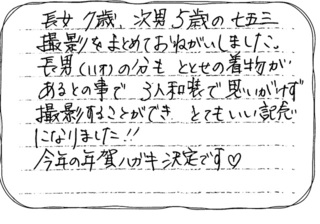 長女 7歳、次男 5歳の 七五三
撮影をまとめておねがいしました。
長男(11才)の分も ととせの着物が
あるとの事で 3人和装で思いがけず
撮影することができ とてもいい記念
になりました!!
今年の年賀ハガキ決定です♡